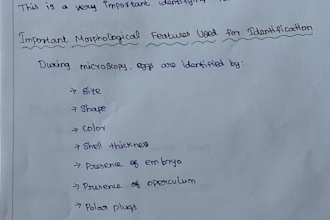 This is a very important identifying
Important Morphological Features Used for Identification
During microscopy, eggs are identified by:
→ Size
→ Shape
→ Color
→ Shell thickness
→ Presence of embryo
→ Presence of operculum
→ Polar plugs